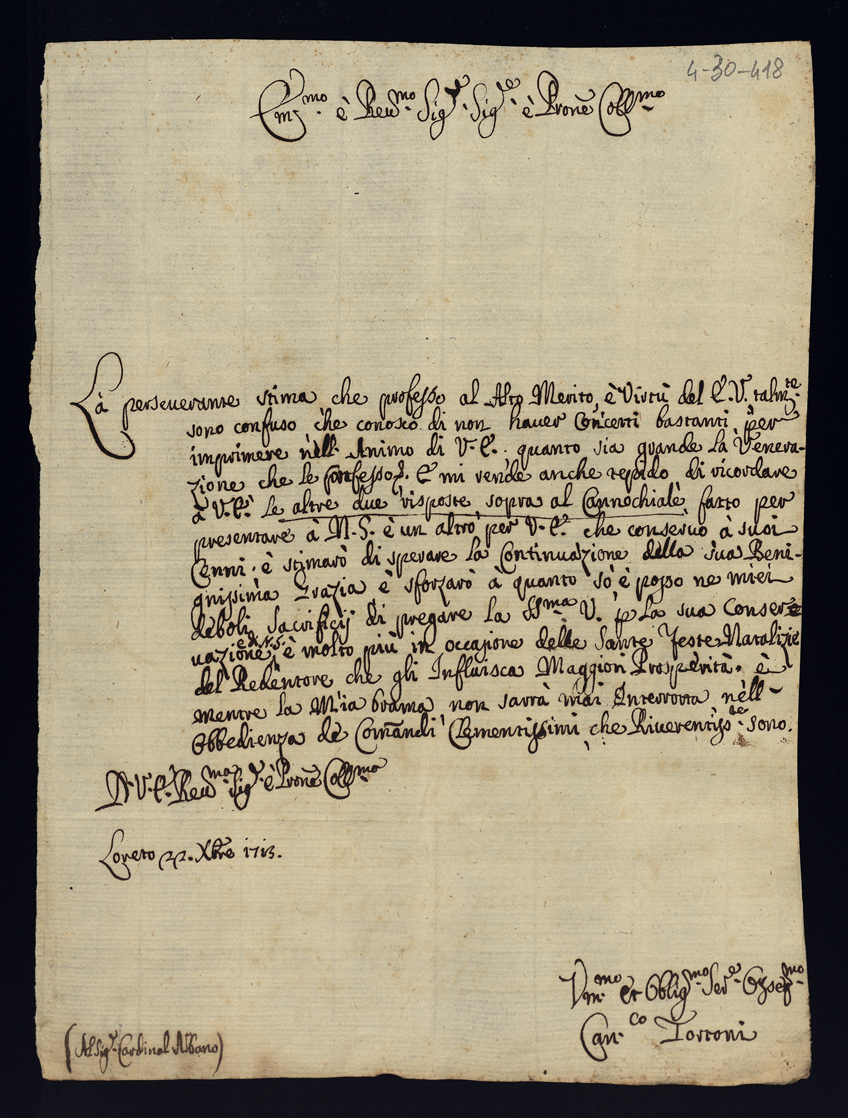 4-30-418
Em.mo è Reu.mo Sig.re Sig.re è Prone Coll.mo
Là perseuerante stima che professo al Alto Merito, è Virtù del E.V. talm.te
sono confuso che conosco di non hauer Concetti bastanti per
imprimere nèll. Animo di V.E. quanto sia grande la Venera-
zione che le professo. E mi rende anche tepido di ricordare
à V.E. le altre due risposte sopra al Cannochiale fatto per
presentare à N.S. è un altro per V.E. che conseruo à suoi
Cenni. è stimarò di sperare la Continuazione della sua Beni-
gnissima Grazia è sforzarò à quanto so è posso ne miei
deboli Sacrificij di pregare la SS.ma V. p La sua Conser-
uazione, e di N.S. è molto più in occasione delle Sante Feste Natalizie
del Redentore che gli Influisca Maggiori Prosperità. è
mentre la Mia brama non sarrà mai Interrotta nèll-
Obbedienza de Comandi Clementissimi che Riuerentiss.te sono.
D. V.E. Reu.ma Sig.re è Prone Coll.mo
Loreto 22. Xbre 1713.
Vm.mo et Oblig.mo Ser.e Osseq.mo
Can.co Torroni
(Al Sig.r Cardinal Albano)